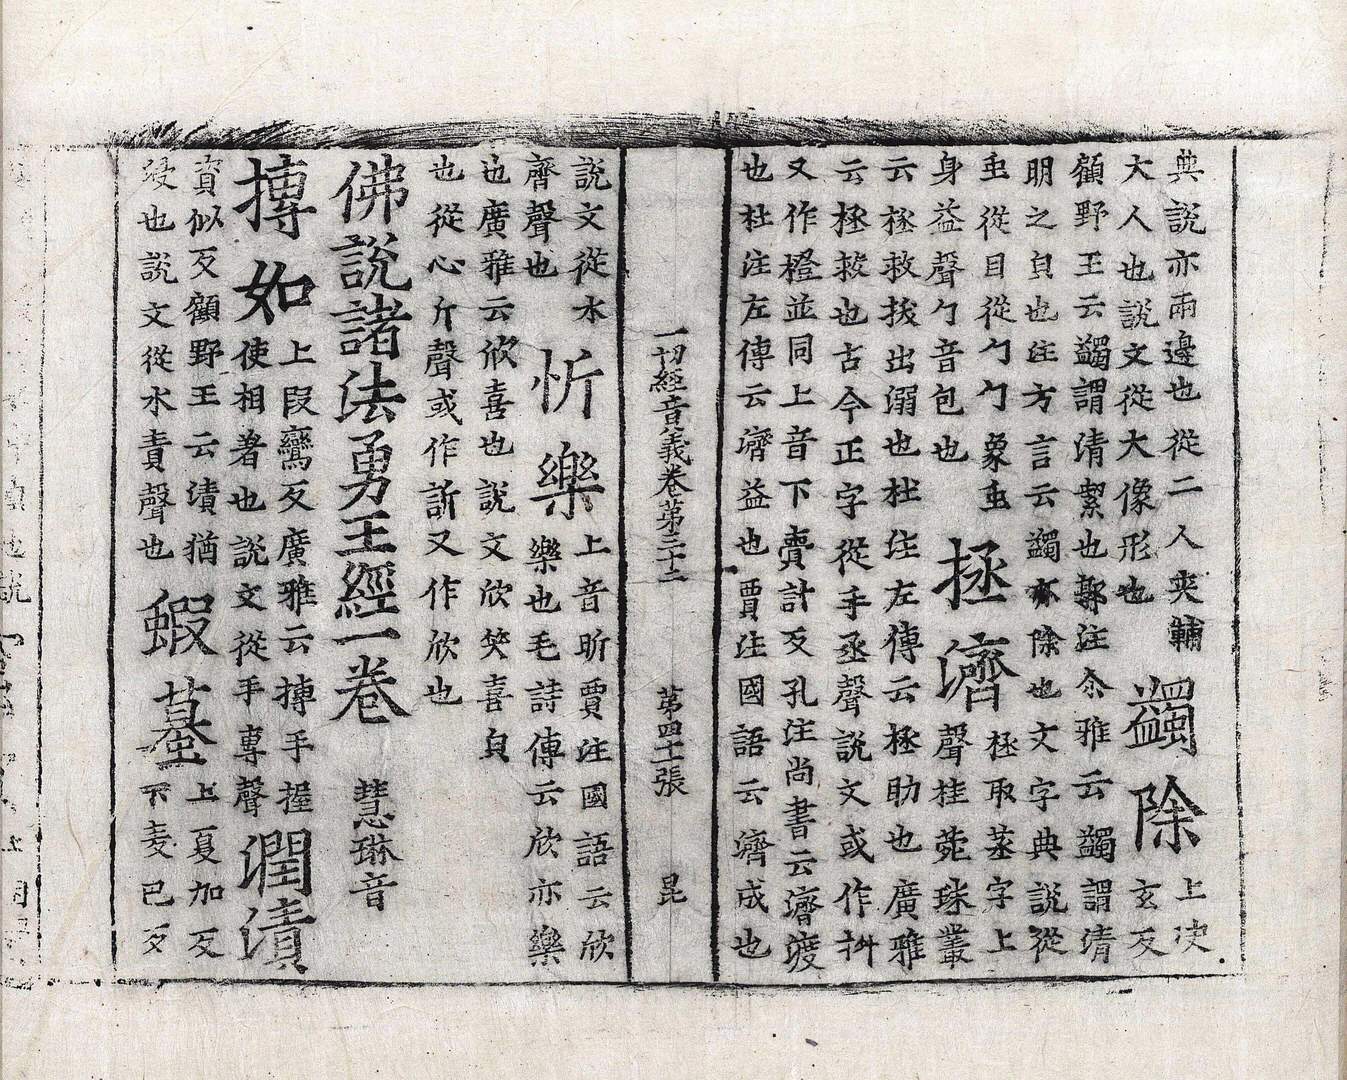 典說亦兩邊也從二人夾輔
大人也說文從大像形也
蠲除上决玄反
顧野王云蠲謂清絜也郭注尒雅云蠲謂清
明之皃也注方言云蠲亦除也文字典說從
虫從目從勹勹象虫
身益聲勹音包也
拯濟拯取蒸字上聲桂苑珠叢
云拯救拔出溺也杜注左傳云拯助也廣雅
云拯救也古今正字從手丞聲說文或作抍
又作橙並同上音下賷計反孔注尚書云濟渡
也杜注左傳云濟益也賈注國語云濟成也
一切經音義卷第三十二 第四十張 昆
說文從水
齊聲也
忻樂上音昕賈注國語云欣樂也毛詩傳云欣亦樂
也廣雅云欣喜也說文欣笑喜皃
也從心斤聲或作訢又作欣也
佛說諸法勇王經一卷 慧琳音
摶如上段鸞反廣雅云摶手握使相著也說文從手專聲
潤漬
資似反顧野王云漬猶
浸也說文從水責聲也
蝦蟇上夏加反下麦巴反